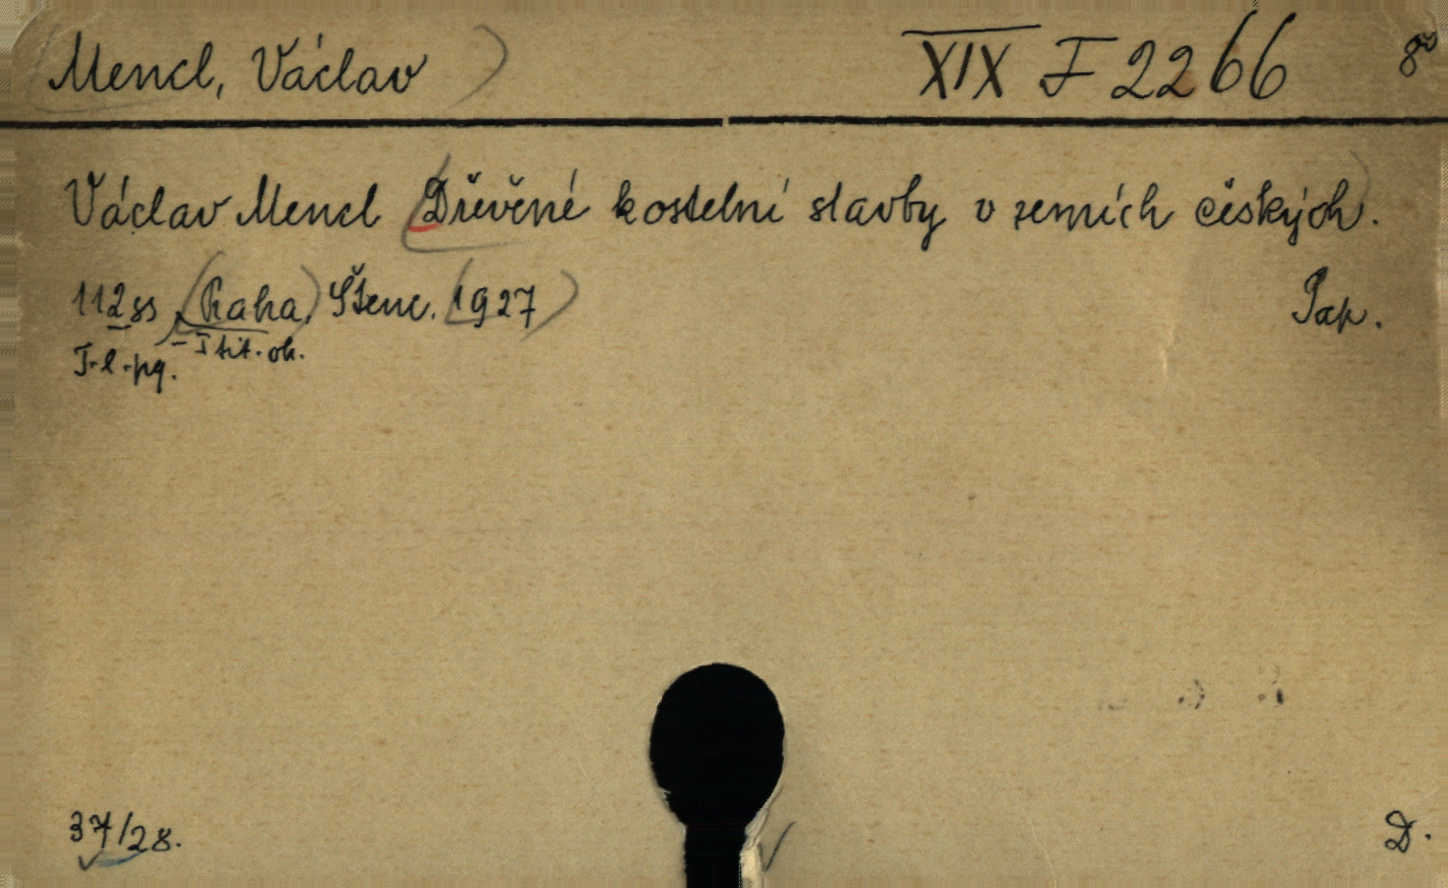 Mencl, Václav XIX F 2266 8°
Václav Mencl Dřevěné kostelní stavby v zemích českých.
112 ss (Praha, Štenc. 1927) Pap.
T. l. pg. - I tit. ob.
37/28. D.